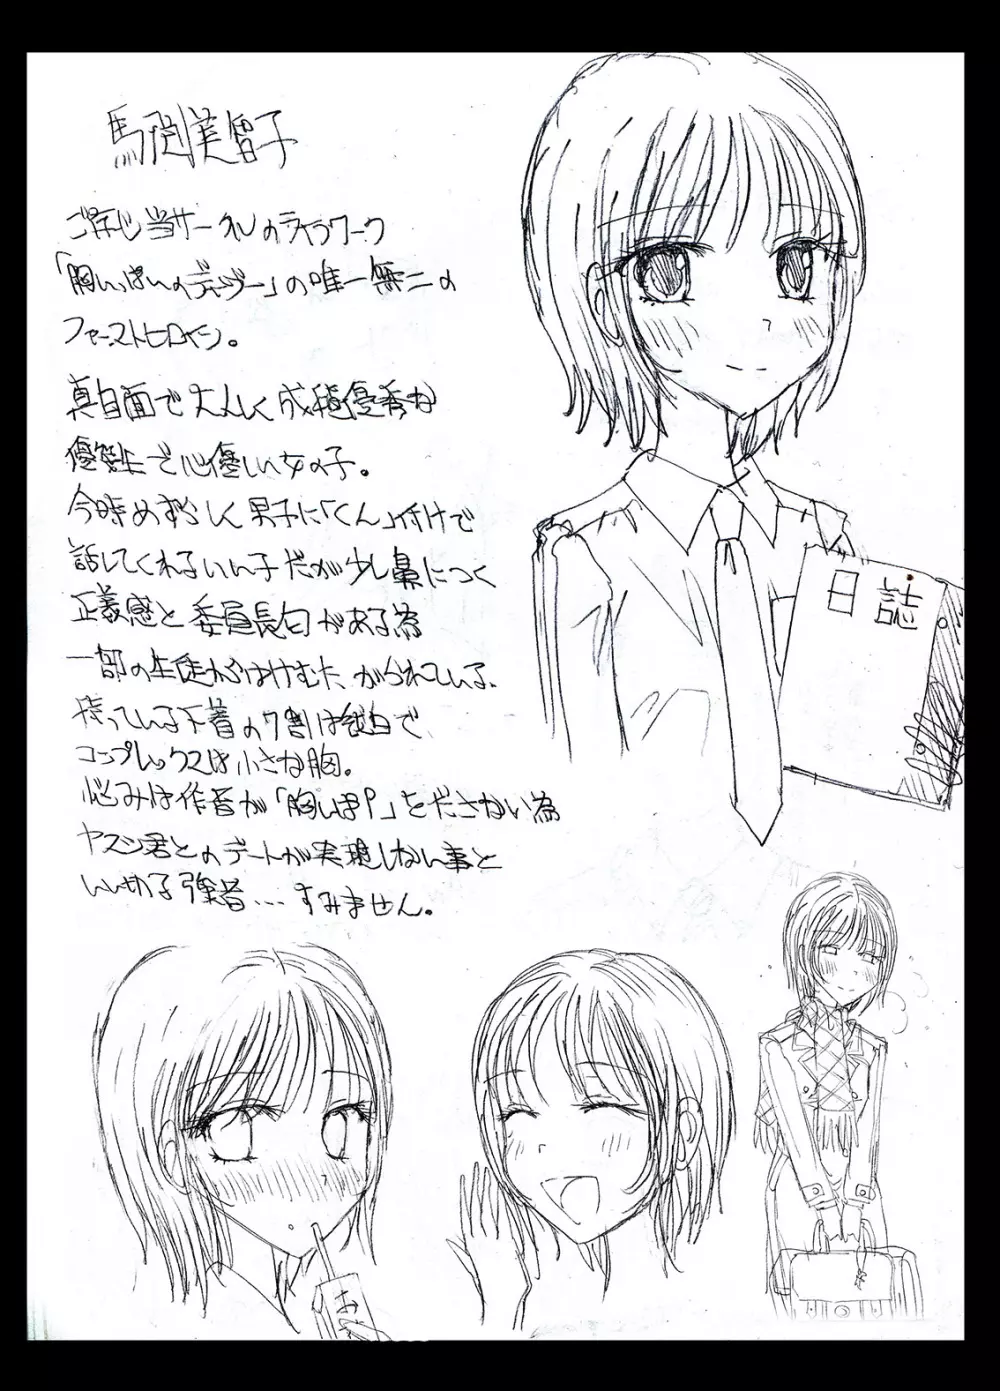 馬渕美智子
ご存じ当サークルのライフワーク
「胸いっぱいのディザー」の唯一無二の
ファーストヒロイン。
真面目で大人しく成績優秀な
優等生で心優しい女の子。
今時めずらしく男子に「くん」付けで
話してくれるいい子だが少し鼻につく
正義感と委員長臼がある為
一部の生徒からはけむたがられている、
持っている下着の7割は純白で
コンプレックスは小さな胸。
悩みは作者が「胸いぱ」をださない為
ヤスシ君とのデートが実現しない事と
いい切る強者...すみません。
日誌
お